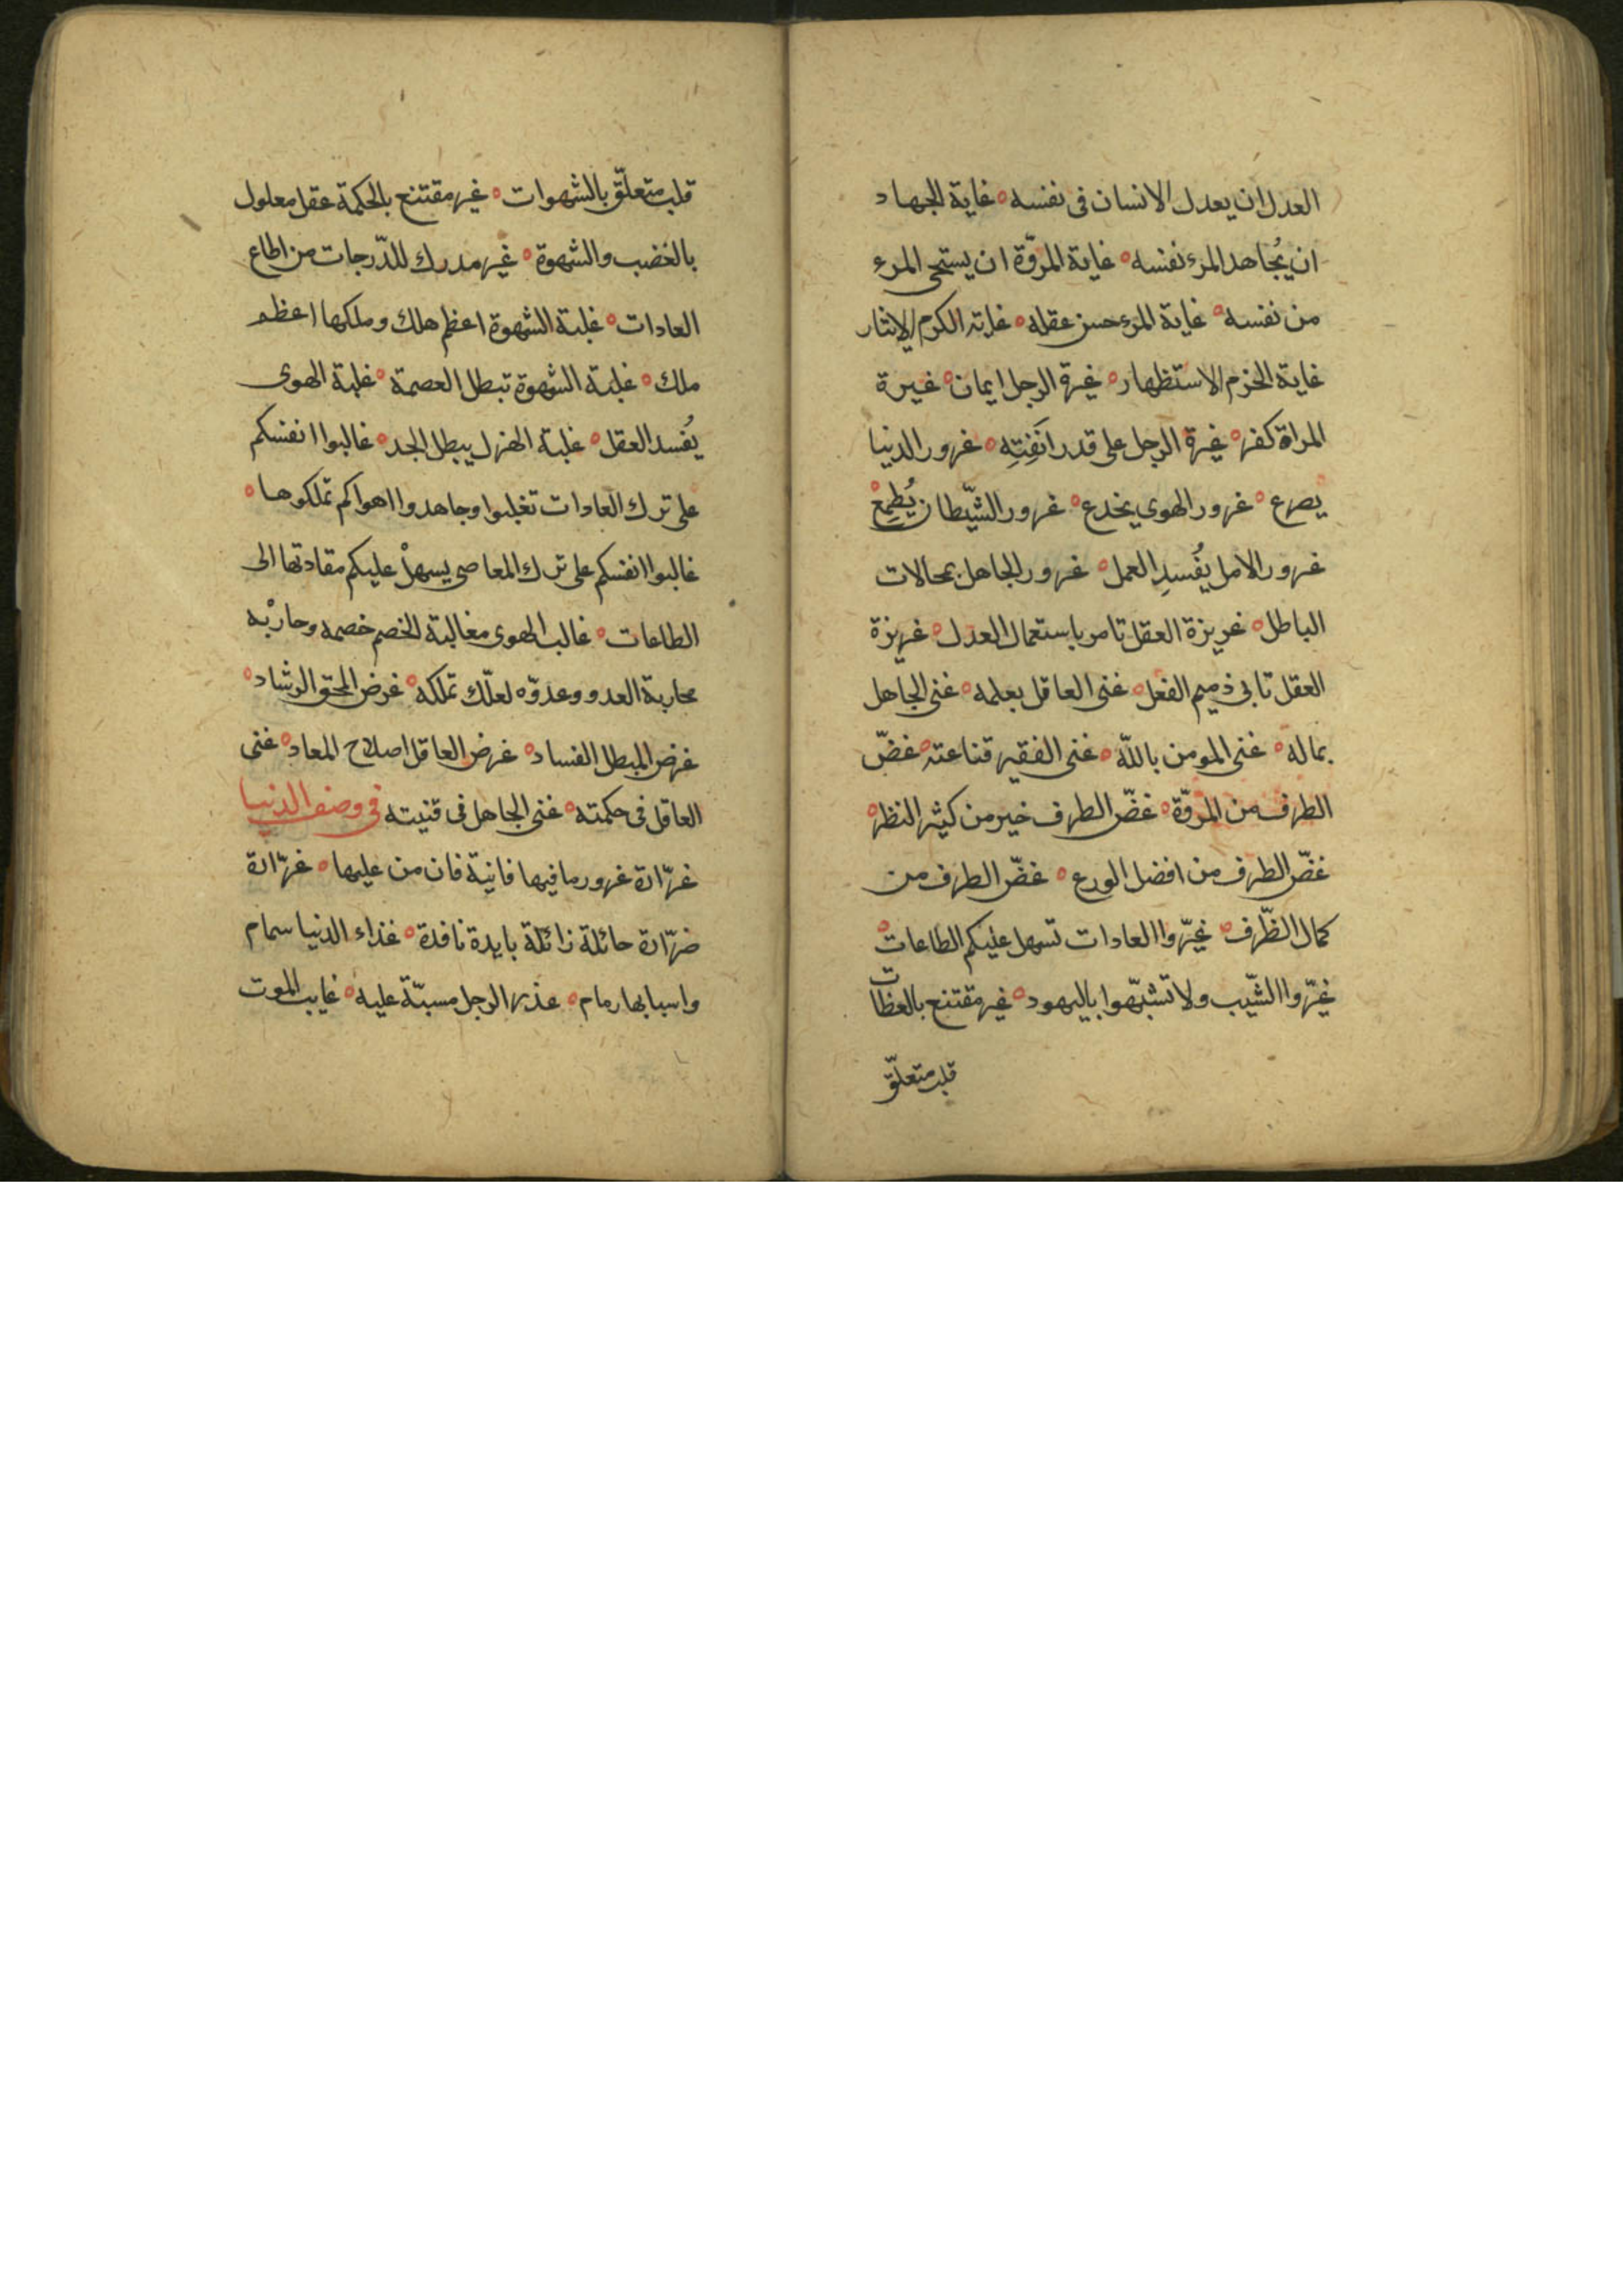 العدل ان يعدل الانسان فى نفسه ° غاية الجهاد
ان يُجاهد المرء نفسه ° غاية المروّة ان يستحى المرء
من نفسه ° غاية المرء حسن عقله ° غاية الكرم الايثار
غاية الحزم الاستظهار ° غيرة الرجل ايمان ° غيرة
المراة كفر ° غيرة الرجل على قدر انَفَتِهِ ° غرور الدنيا
يصرع ° غرور الهوي يخدع ° غرور الشّيطان يُطمِعْ °
غرور الامل يُفسِد العمل ° غرور الجاهل بمحالات
الباطل ° غريزة العقل تامر باستعمال العدل ° غريزة
العقل تابى ذميم الفعل ° غنى العاقل بعلمه ° غنى الجاهل
بماله ° غنى المومن باللّه ° غنى الفقير قناعته ° غضّ
الطرف من المروّة ° غضّ الطرف خير من كثير النظر °
غضّ الطرف من افضل الورع ° غضّ الطرف من
كمال الظّرف ° غيّروا العادات تسهل عليكم الطاعات °
غيّروا الشّيب ولا تشبّهوا باليهود ° غير مقتنع بالعظات
قلب متعلّق
قلب متعلّق بالشهوات ° غير مقتنع بالحكمة عقل معلول
بالغضب والشهوة ° غير مدرك للدّرجات من اطاع
العادات ° غلبة الشهوة اعظم هلك وملكها اعظم
ملك ° غلبة الشهوة تبطل العصمة ° غلبة الهوى
يُفسد العقل ° غلبة الهزل يبطل الجد ° غالبوا انفسكم
على ترك العادات تغلبوا وجاهدوا اهواكم تملكوها °
غالبوا انفسكم على ترك المعاصى يسهلْ عليكم مقادتها الى
الطاعات ° غالب الهوى مغالبة الخصم خصمه وحارْبه
محاربة العدو وعدوّه لعلّك تملكه ° غرض المحق الرشاد °
غرض المبطل الفساد ° غرض العاقل اصلاح المعاد ° غنى
العاقل فى حكمته ° غنى الجاهل فى قنيته فى وصف الدنيا
غرّارة غرور ما فيها فانية فان من عليها ° غرّارة
ضرّارة حائلة زائلة بايدة نافدة ° غذاء الدنيا سمام
واسبابها رمام ° عذر الرجل مسبّة عليه ° غايب الموت